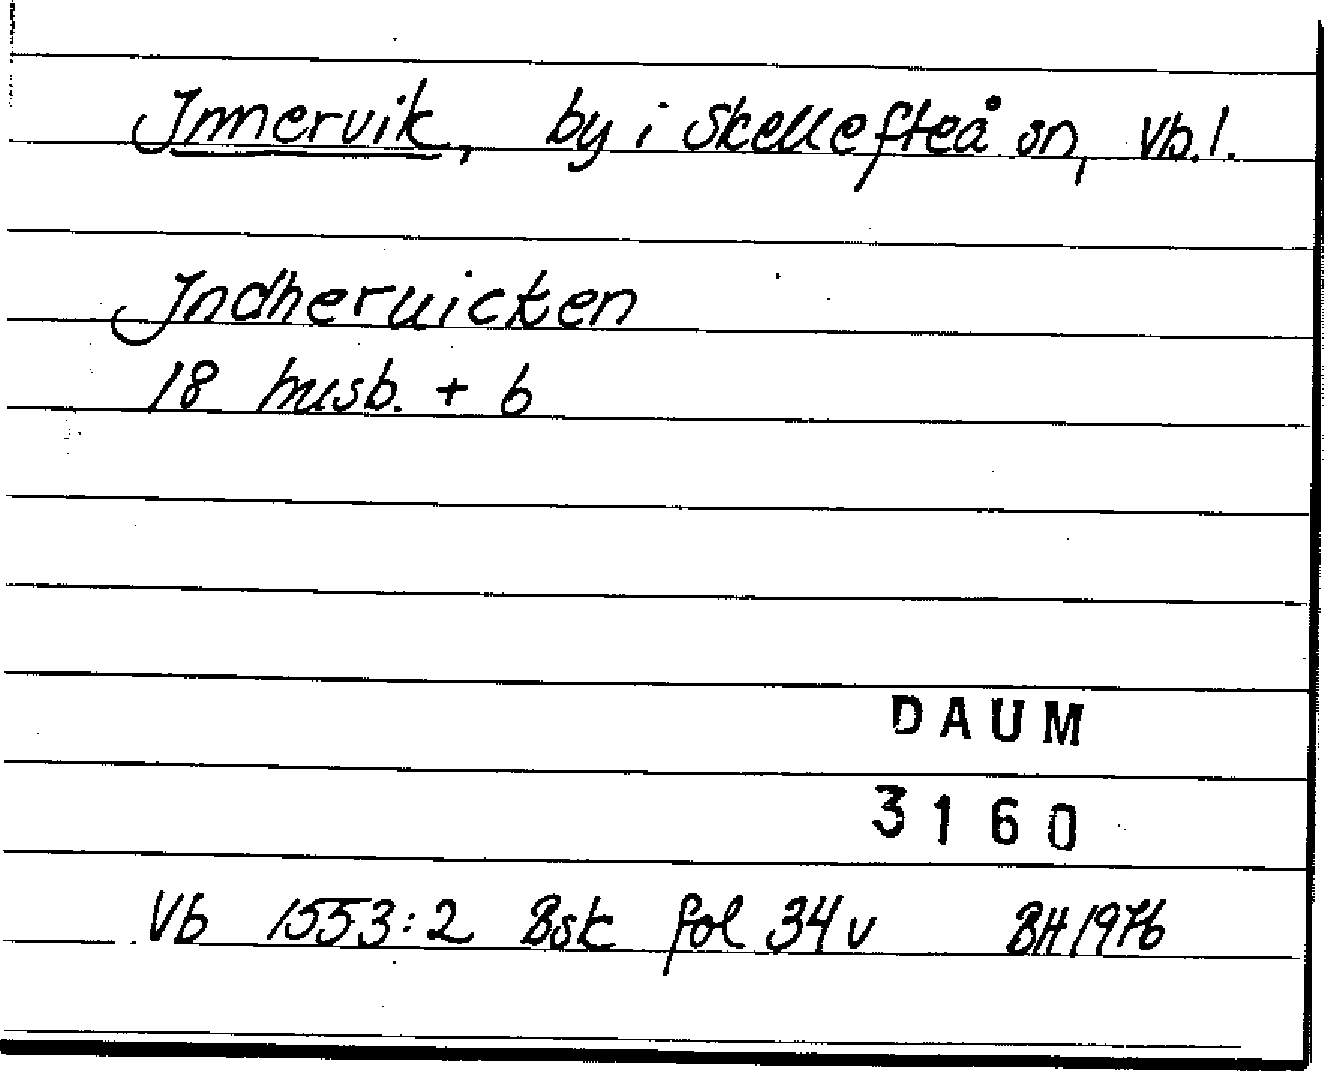 Innervik, by i Skellefteå sn, Vb.l.
Indheruicken
18 husb. + 6
DAUM
3160
Vb 1553:2 Bsk fol 34 v BH 1976